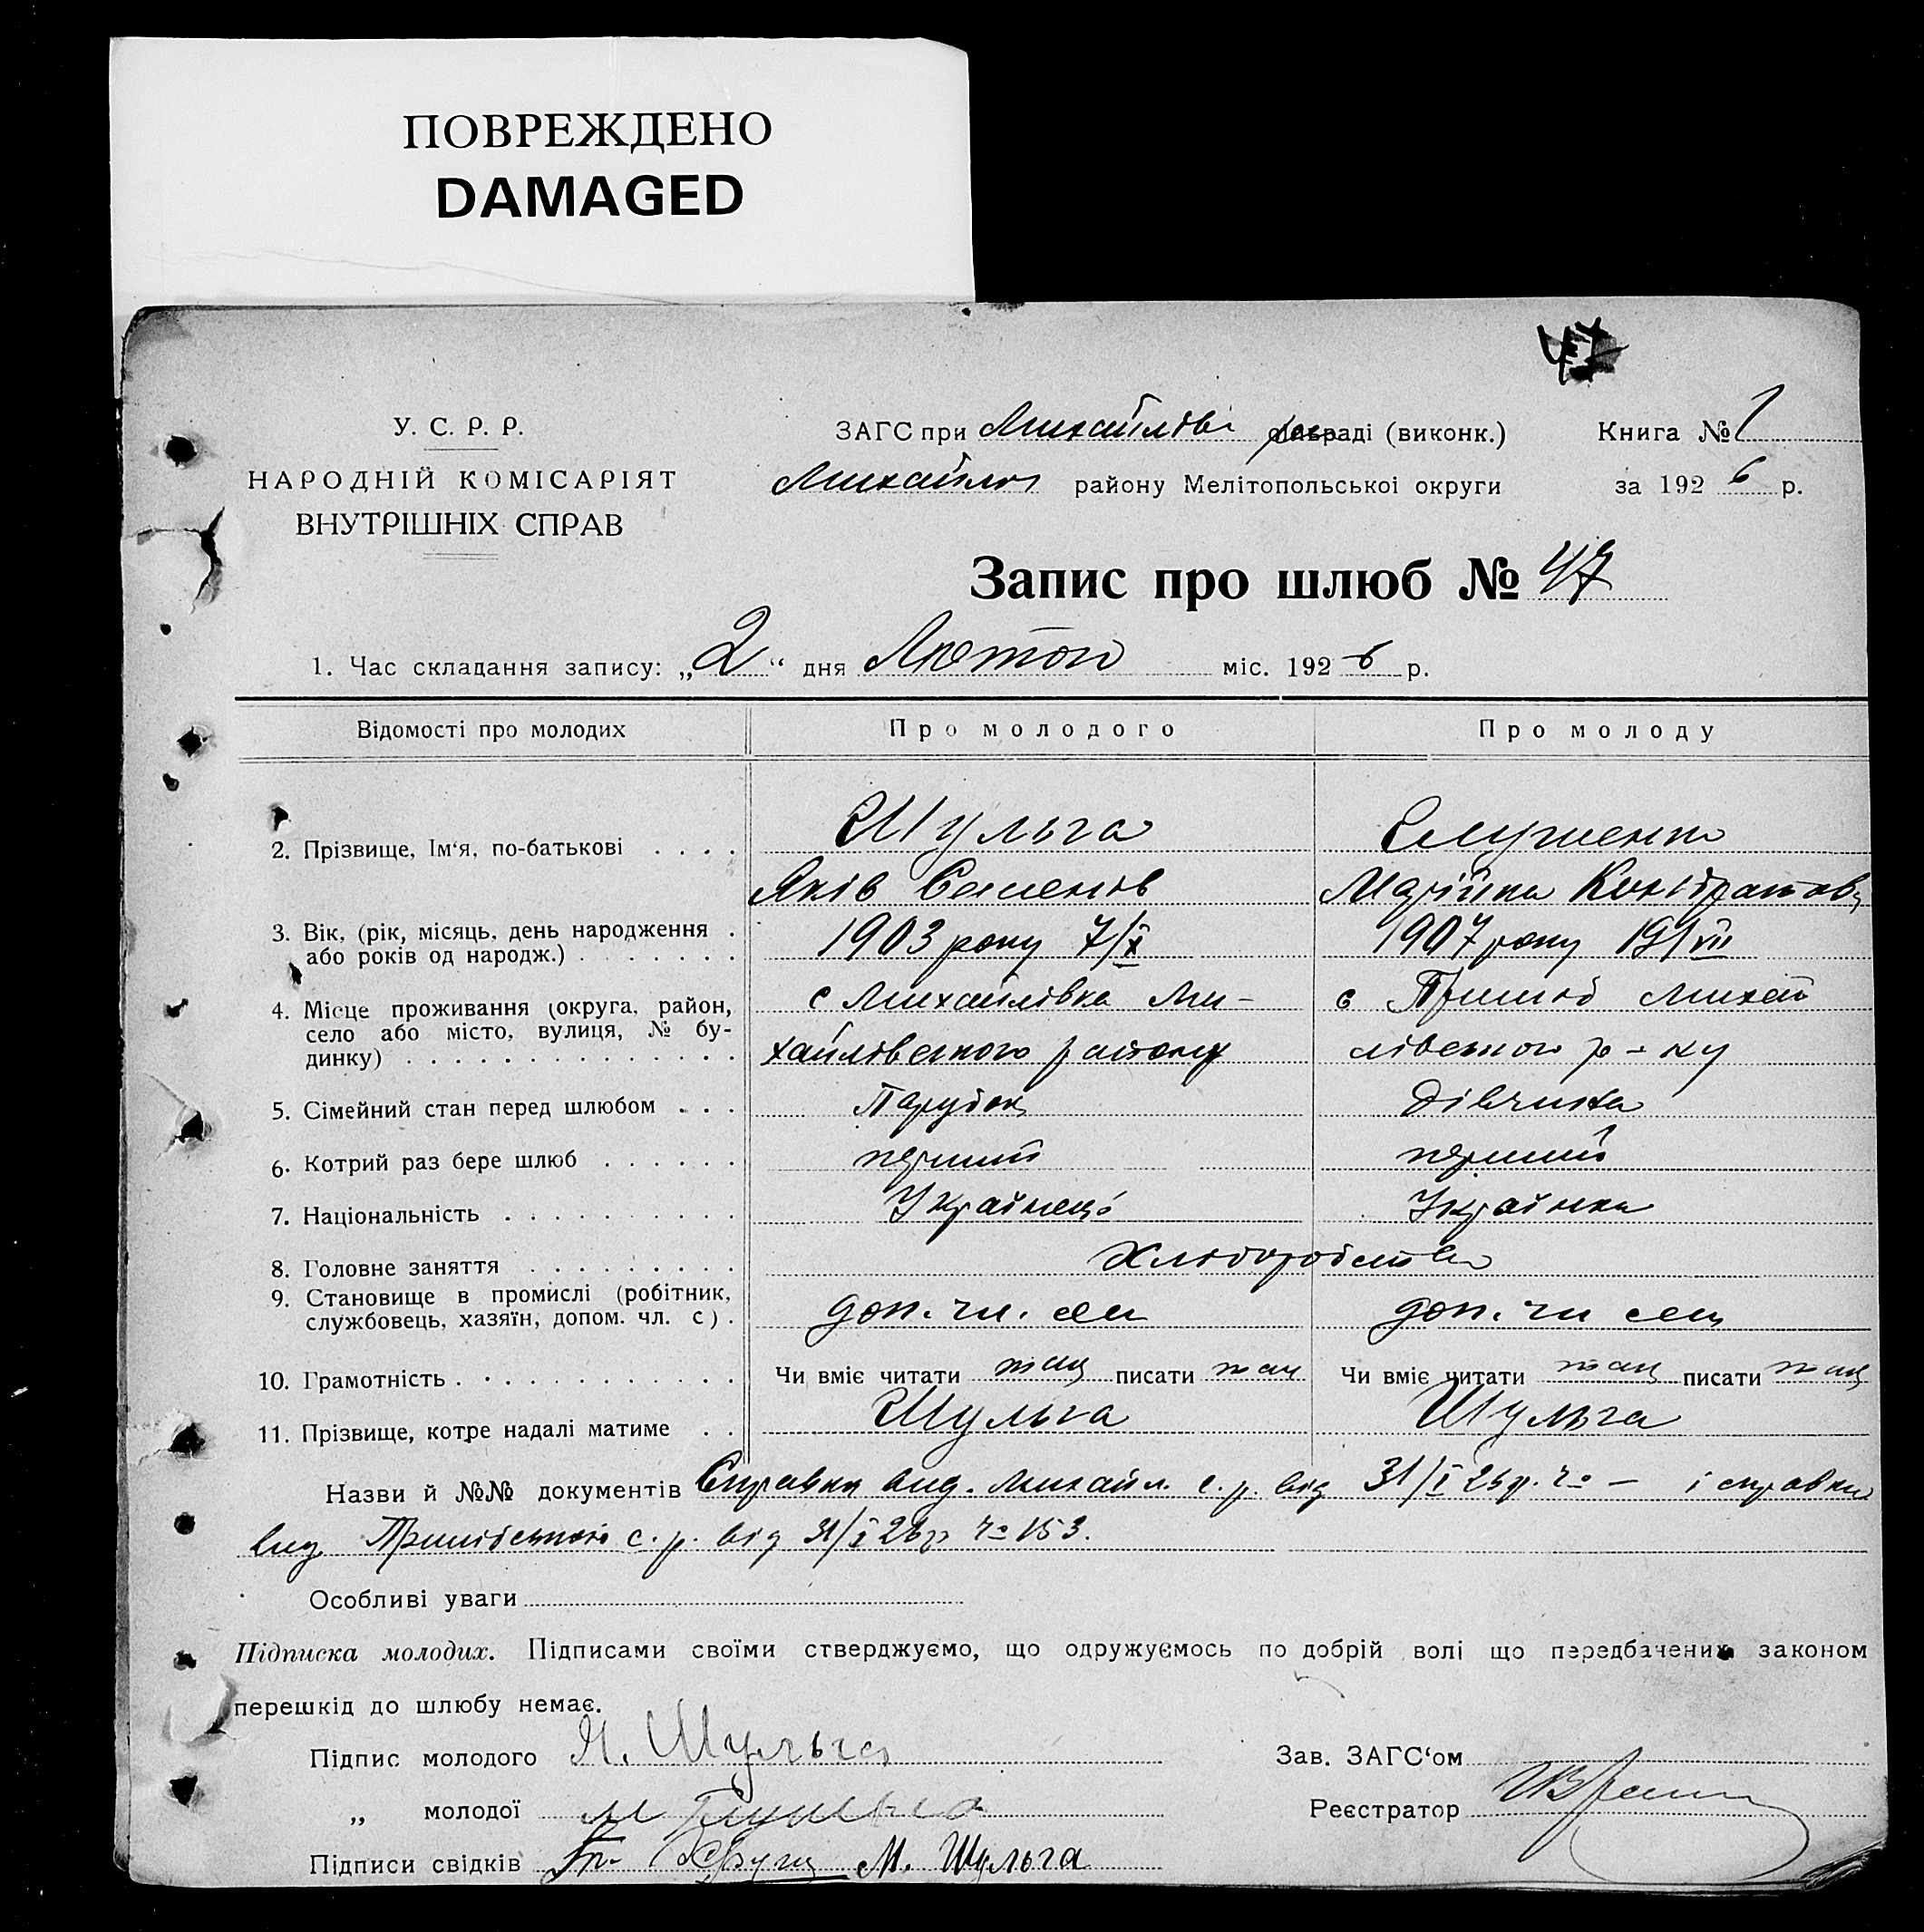 ПОВРЕЖДЕНО
DAMAGED
47
У. С. Р. Р.
НАРОДНІЙ КОМІСАРІЯТ
ВНУТРІШНІХ СПРАВ
ЗАГС при Михайлів раді (виконк.)
Михайлов району Мелітопольськоі округи
Книга № 1
за 1926 р.
Запис про шлюб № 47
1. Час складання запису: „2“ дня Лютого міс. 1926 р.
Відомості про молодих
Про молодого
Про молоду
2. Прізвище, Ім‘я, по-батькові . . . .
Шульга
Яків Семенов
Марійка Кондратов
3. Вік, (рік, місяць, день народження .
або років од народж.) . . . . . . .
1903 року 7/X
1907 року 19/VII
4. Місце проживання (округа, район,
село або місто, вулиця, № бу-
динку) . . . . . . . . . . . . . .
с Михайлівка Ми-
хайлівського району
с Пришиб Михай
лівського р-ну
5. Сімейний стан перед шлюбом . . .
Парубок
Дівчина
6. Котрий раз бере шлюб . . . . . .
перший
перший
7. Національність . . . . . . . . . .
Українець
Українка
8. Головне заняття . . . . . . . . .
Хліборобство
9. Становище в промислі (робітник,
службовець, хазяїн, допом. чл. с) .
доп. чл. сем
доп. чл сем
10. Грамотність . . . . . . . . . . . .
Чи вміє читати так писати так
Чи вміє читати так писати так
11. Прізвище, котре надалі матиме . .
Шульга
Шульга
Назви й №№ документів Справка вид. Михайл. с. р. від 31/I 26р. ч° — і справка
вид. Пришибською с. р. від 31/I 26р ч° 153.
Особливі уваги
Підписка молодих. Підписами своїми стверджуємо, що одружуємось по добрій волі що передбачених законом
перешкід до шлюбу немає.
Підпис молодого Я. Шульга
„ молодої М
Підписи свідків М. Шульга
Зав. ЗАГС‘ом
Реєстратор